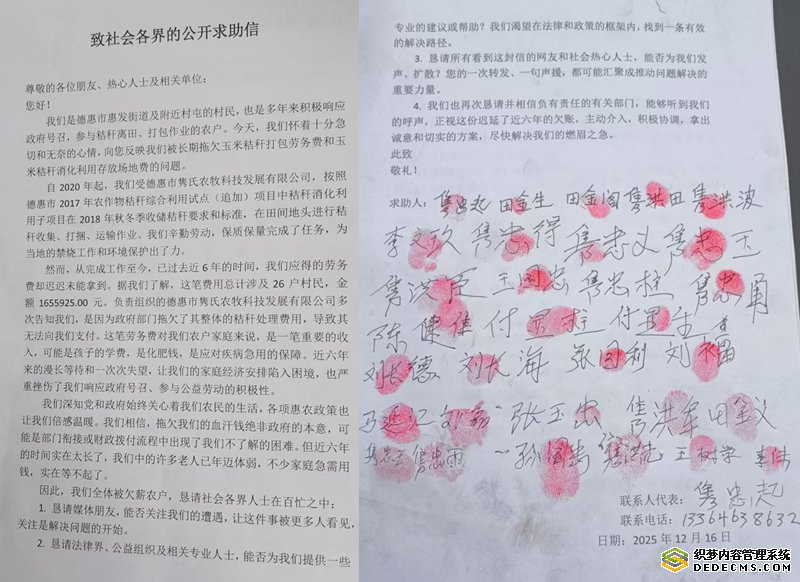 致社会各界的公开求助信
尊敬的各位朋友、热心人士及相关单位：
您好！
我们是德惠市惠发街道及附近村屯的村民，也是多年来积极响应
政府号召，参与秸秆离田、打包作业的农户。今天，我们怀着十分急
切和无奈的心情，向您反映我们被长期拖欠玉米秸秆打包劳务费和玉
米秸秆消化利用存放场地费的问题。
自 2020 年起，我们受德惠市隽氏农牧科技发展有限公司，按照
德惠市 2017 年农作物秸秆综合利用试点（追加）项目中秸秆消化利
用子项目在 2018 年秋冬季收储秸秆要求和标准，在田间地头进行秸
秆收集、打捆、运输作业。我们辛勤劳动，保质保量完成了任务，为
当地的禁烧工作和环境保护出了力。
然而，从完成工作至今，已过去近 6 年的时间，我们应得的劳务
费却迟迟未能拿到。据我们了解，这笔费用总计涉及 26 户村民，金
额 1655925.00 元。负责组织的德惠市隽氏农牧科技发展有限公司多
次告知我们，是因为政府部门拖欠了其整体的秸秆处理费用，导致其
无法向我们支付。这笔劳务费对我们农户家庭来说，是一笔重要的收
入，可能是孩子的学费，是化肥钱，是应对疾病急用的保障。近六年
来的漫长等待和一次次失望，让我们的家庭经济安排陷入困境，也严
重挫伤了我们响应政府号召、参与公益劳动的积极性。
我们深知党和政府始终关心着我们农民的生活，各项惠农政策也
让我们倍感温暖。我们相信，拖欠我们的血汗钱绝非政府的本意，可
能是部门衔接或财政拨付流程中出现了我们不了解的困难。但近六年
的时间实在太长了，我们中的许多老人已年迈体弱，不少家庭急需用
钱，实在等不起了。
因此，我们全体被欠薪农户，恳请社会各界人士在百忙之中：
1. 恳请媒体朋友，能否关注我们的遭遇，让这件事被更多人看见，
关注是解决问题的开始。
2. 恳请法律界、公益组织及相关专业人士，能否为我们提供一些
专业的建议或帮助？我们渴望在法律和政策的框架内，找到一条有效
的解决路径。
3. 恳请所有看到这封信的网友和社会热心人士，能否为我们发
声、扩散？您的一次转发、一句声援，都可能汇聚成推动问题解决的
重要力量。
4. 我们也再次恳请并相信负有责任的有关部门，能够听到我们
的呼声，正视这份迟延了近六年的欠账，主动介入，积极协调，拿出
诚意和切实的方案，尽快解决我们的燃眉之急。
此致
敬礼！
求助人：隽忠起 田金生 田金阁 隽洪田 隽洪波
李文改 隽忠得 隽忠义 隽忠玉
隽洪臣 王国忠 隽忠柱 隽 勇
陈健 付显柱 付显生
刘长德 刘长海 张国利 刘福
张玉忠 隽洪军 田金义
隽忠 孙国 隽洪志 王树 李伟
联系人代表：隽忠起
联系电话：13564638632
日期：2025 年 12 月 16 日
织梦内容管理系统
DEDECMS.COM